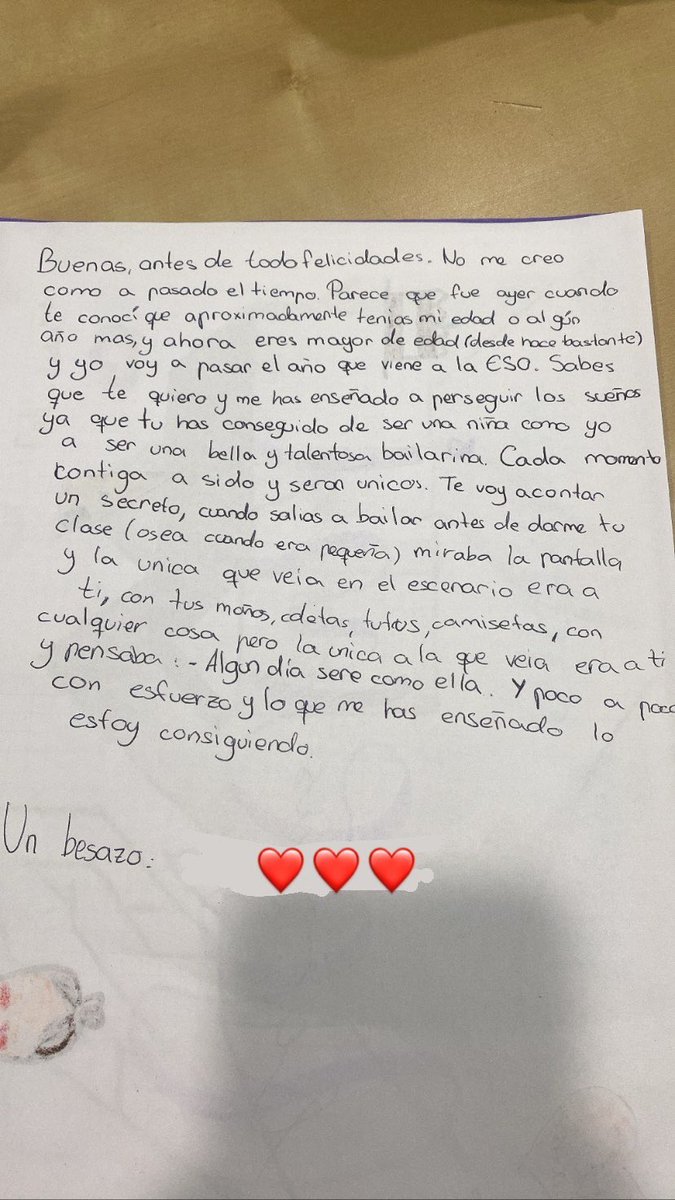 Buenas, antes de todo felicidades. No me creo
como a pasado el tiempo. Parece que fue ayer cuando
te conocí que aproximadamente tenias mi edad o algún
año mas, y ahora eres mayor de edad (desde hace bastante)
y yo voy a pasar el año que viene a la ESO. Sabes
que te quiero y me has enseñado a perseguir los sueños
ya que tu has conseguido de ser una niña como yo
a ser una bella y talentosa bailarina. Cada momento
contigo a sido y seran unicos. Te voy acontar
un secreto, cuando salias a bailar antes de darme tu
clase (osea cuando era pequeña) miraba la pantalla
y la unica que veia en el escenario era a
ti, con tus moños, coletas, tutus, camisetas, con
cualquier cosa pero la unica a la que veia era a ti
y pensaba: - Algun día sere como ella. Y poco a poco
con esfuerzo y lo que me has enseñado lo
estoy consiguiendo.
Un besazo: